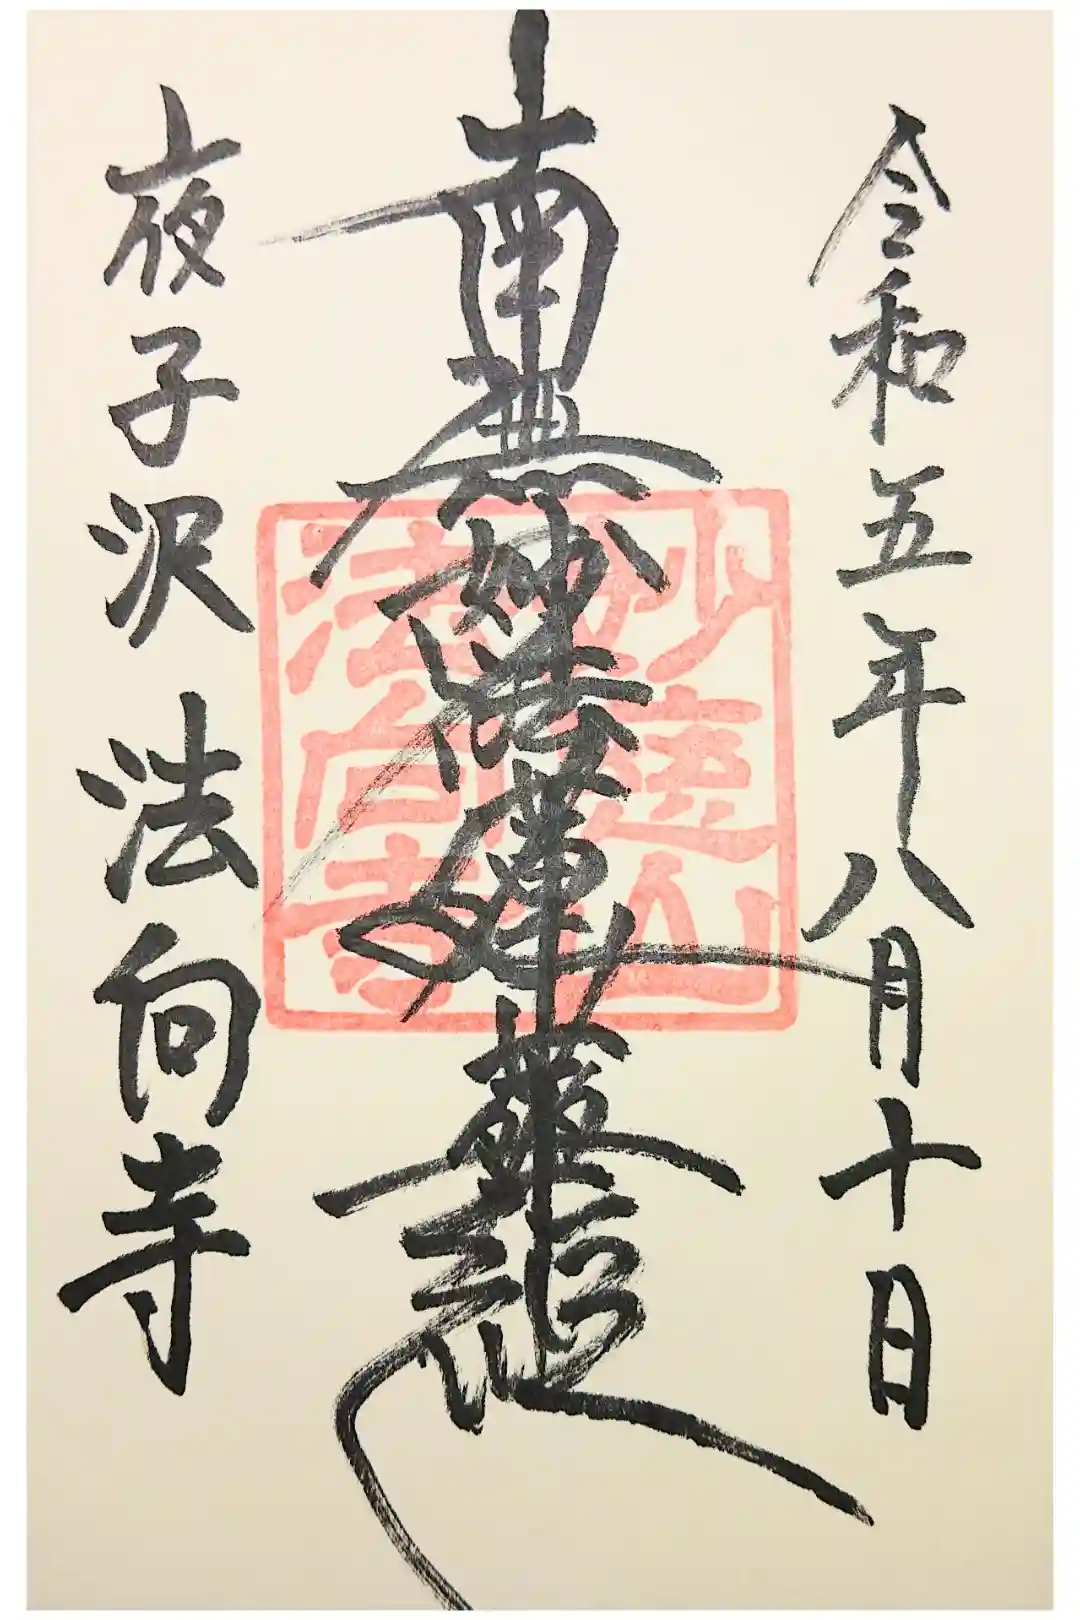 令和五年八月十日
南無妙法蓮華経
妙蓮山
法向寺
夜子沢 法向寺